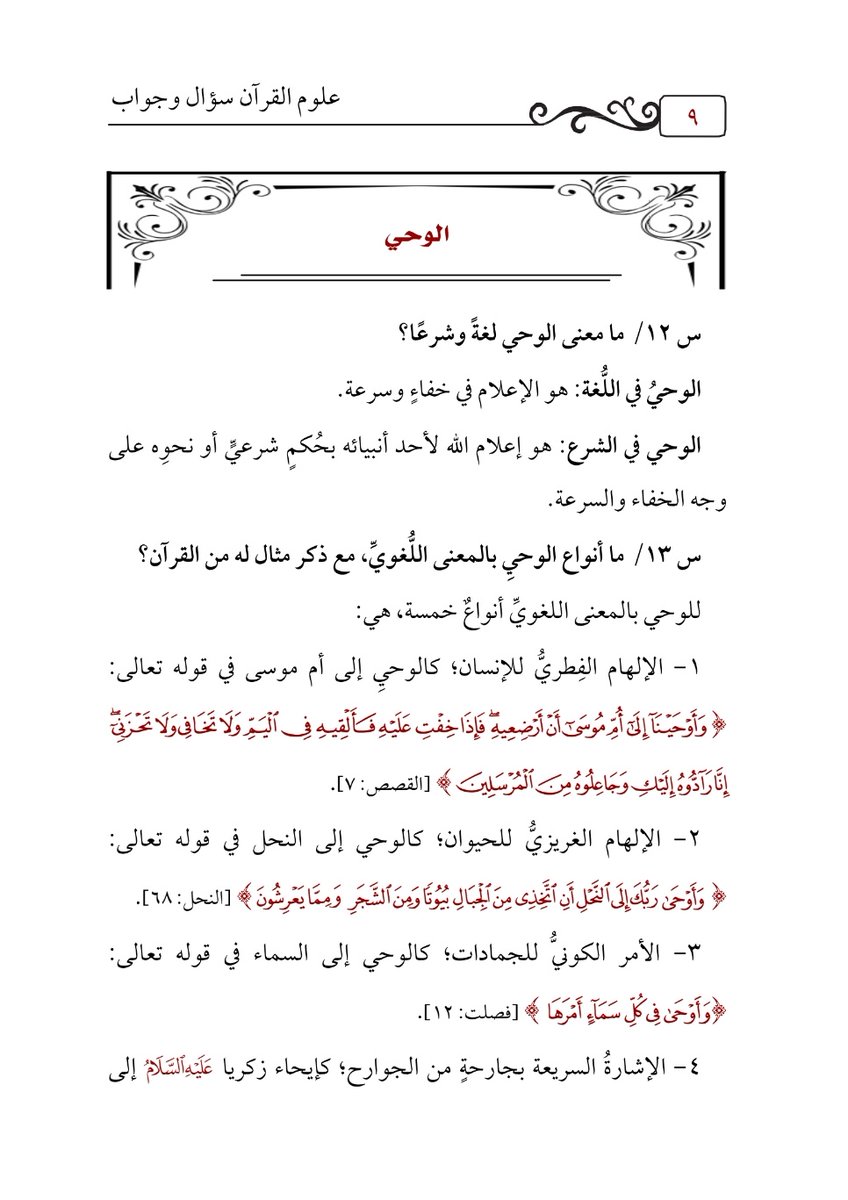 علوم القرآن سؤال وجواب
٩
الوحي
س ١٢/ ما معنى الوحي لغةً وشرعًا؟
الوحيُ في اللُّغة: هو الإعلام في خفاءٍ وسرعة.
الوحي في الشرع: هو إعلام الله لأحد أنبيائه بحُكمٍ شرعيٍّ أو نحوِه على
وجه الخفاء والسرعة.
س ١٣/ ما أنواع الوحيِ بالمعنى اللُّغويِّ، مع ذكر مثال له من القرآن؟
للوحي بالمعنى اللغويِّ أنواعٌ خمسة، هي:
١- الإلهام الفِطريُّ للإنسان؛ كالوحيِ إلى أم موسى في قوله تعالى:
﴿وَأَوْحَيْنَآ إِلَىٰٓ أُمِّ مُوسَىٰٓ أَنْ أَرْضِعِيهِ ۖ فَإِذَا خِفْتِ عَلَيْهِ فَأَلْقِيهِ فِى ٱلْيَمِّ وَلَا تَخَافِى وَلَا تَحْزَنِىٓ ۖ
إِنَّا رَآدُّوهُ إِلَيْكِ وَجَاعِلُوهُ مِنَ ٱلْمُرْسَلِينَ﴾ [القصص: ٧].
٢- الإلهام الغريزيُّ للحيوان؛ كالوحي إلى النحل في قوله تعالى:
﴿وَأَوْحَىٰ رَبُّكَ إِلَى ٱلنَّحْلِ أَنِ ٱتَّخِذِى مِنَ ٱلْجِبَالِ بُيُوتًا وَمِنَ ٱلشَّجَرِ وَمِمَّا يَعْرِشُونَ﴾ [النحل: ٦٨].
٣- الأمر الكونيُّ للجمادات؛ كالوحي إلى السماء في قوله تعالى:
﴿وَأَوْحَىٰ فِى كُلِّ سَمَآءٍ أَمْرَهَا﴾ [فصلت: ١٢].
٤- الإشارةُ السريعة بجارحةٍ من الجوارح؛ كإيحاء زكريا عَلَيْهِ ٱلسَّلَامُ إلى